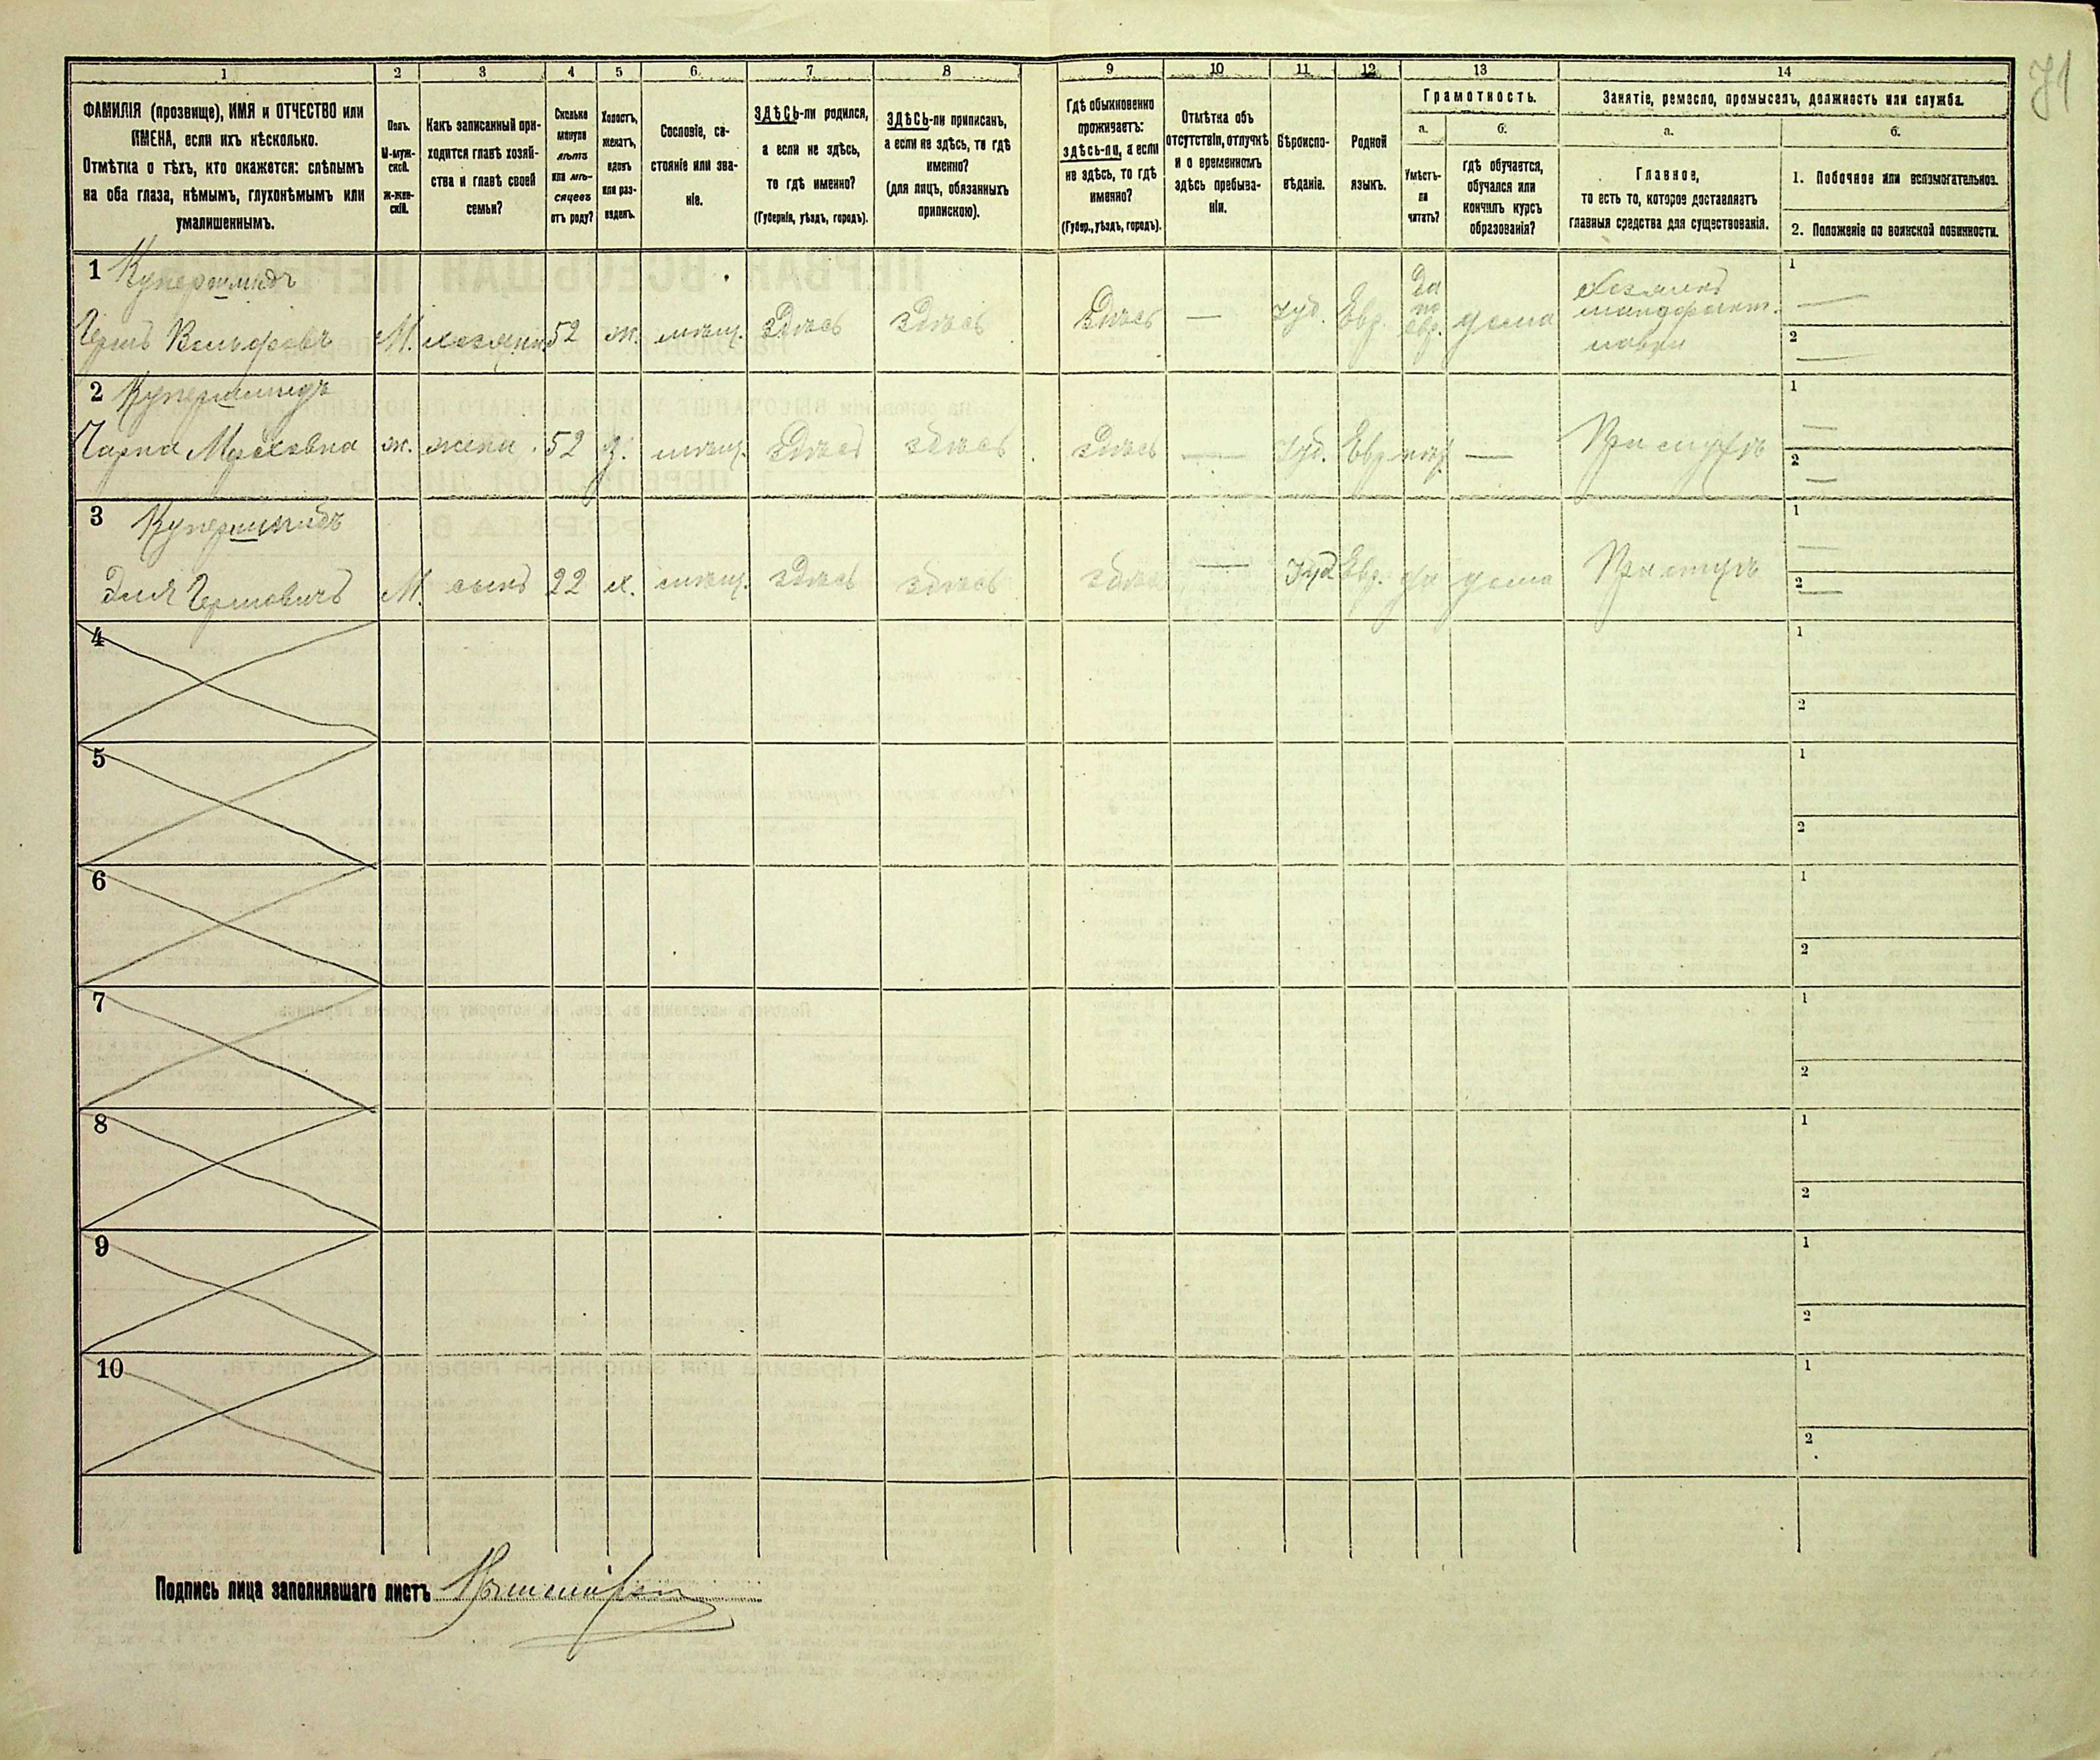 71
1 2 3 4 5 6 7 8 9 10 11 12 13 14
ФАМИЛІЯ (прозвище), ИМЯ и ОТЧЕСТВО или
ИМЕНА, если ихъ нѣсколько.
Отмѣтка о тѣхъ, кто окажется: слѣпымъ
на оба глаза, нѣмымъ, глухонѣмымъ или
умалишеннымъ.
Полъ.
М-муж-
ской.
ж-жен-
скій.
Какъ записанный при-
ходится главѣ хозяй-
ства и главѣ своей
семьи?
Сколько
минуло
лѣтъ
или мѣ-
сяцевъ
отъ роду?
Холостъ,
женатъ,
вдовъ
или раз-
веденъ.
Сословіе, со-
стояніе или зва-
ніе.
ЗДѢСЬ-ли родился,
а если не здѣсь,
то гдѣ именно?
(Губернія, уѣздъ, городъ).
ЗДѢСЬ-ли приписанъ,
а если не здѣсь, то гдѣ
именно?
(для лицъ, обязанныхъ
припискою).
Гдѣ обыкновенно
проживаетъ:
здѣсь-ли, а если
не здѣсь, то гдѣ
именно?
(Губер., уѣздъ, городъ).
Отмѣтка объ
отсутствіи, отлучкѣ
и о временномъ
здѣсь пребыва-
ніи.
Вѣроиспо-
вѣданіе.
Родной
языкъ.
Грамотность.
а.
Умѣетъ-
ли
читать?
б.
гдѣ обучается,
обучался или
кончилъ курсъ
образованія?
Занятіе, ремесло, промыселъ, должность или служба.
а.
Главное,
то есть то, которое доставляетъ
главныя средства для существованія.
б.
1. Побочное или вспомогательное.
2. Положеніе по воинской повинности.
1 Купершмидъ
Гершъ Вольфовъ М. хозяинъ 52 ж. мѣщ. здѣсь здѣсь Здѣсь — Iуд. Евр. да по евр. дома
1
2
2 Купершмидъ
Чарна Мошковна ж. жена 52 з. мѣщ. Здѣсь здѣсь здѣсь — Iуд. Евр. — При мужѣ
1
2
3 Купершмидъ
Эля Гершовичъ М. сынъ 22 х. мѣщ. здѣсь здѣсь здѣсь — Iуд Евр. да дома При отцѣ
1
2
4
1
2
5
1
2
6
1
2
7
1
2
8
1
2
9
1
2
10
1
2
Подпись лица заполнявшаго листъ